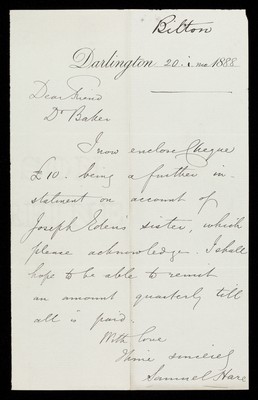 Bilton
Darlington, 20. i mo 1888
Dear Friend
Dr Baker
I now enclose Cheque
£10. being a further in-
stalment on account of
Joseph Eden's sister, which
please acknowledge. I shall
hope to be able to remit
an amount quarterly till
all is paid.
With love
Thine sincerely
Samuel Hare